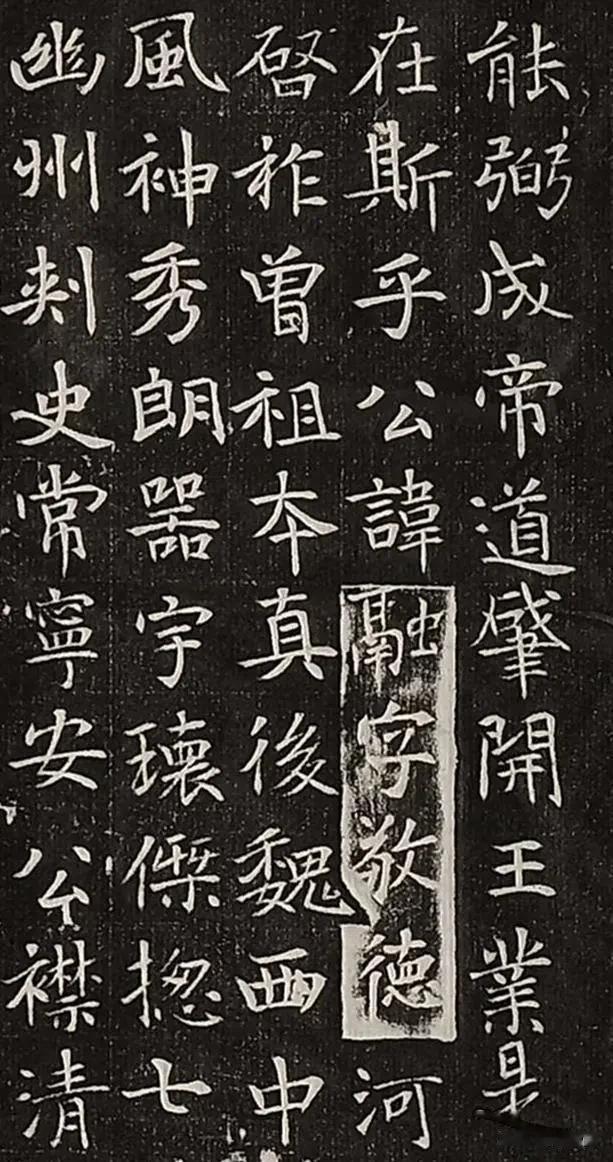 能弼成帝道肇開王業是
在斯乎公諱融字敬德河
啓祚曾祖本真後魏西中
風神秀朗器宇瓌傑揔七
幽州刺史常寧安公襟清